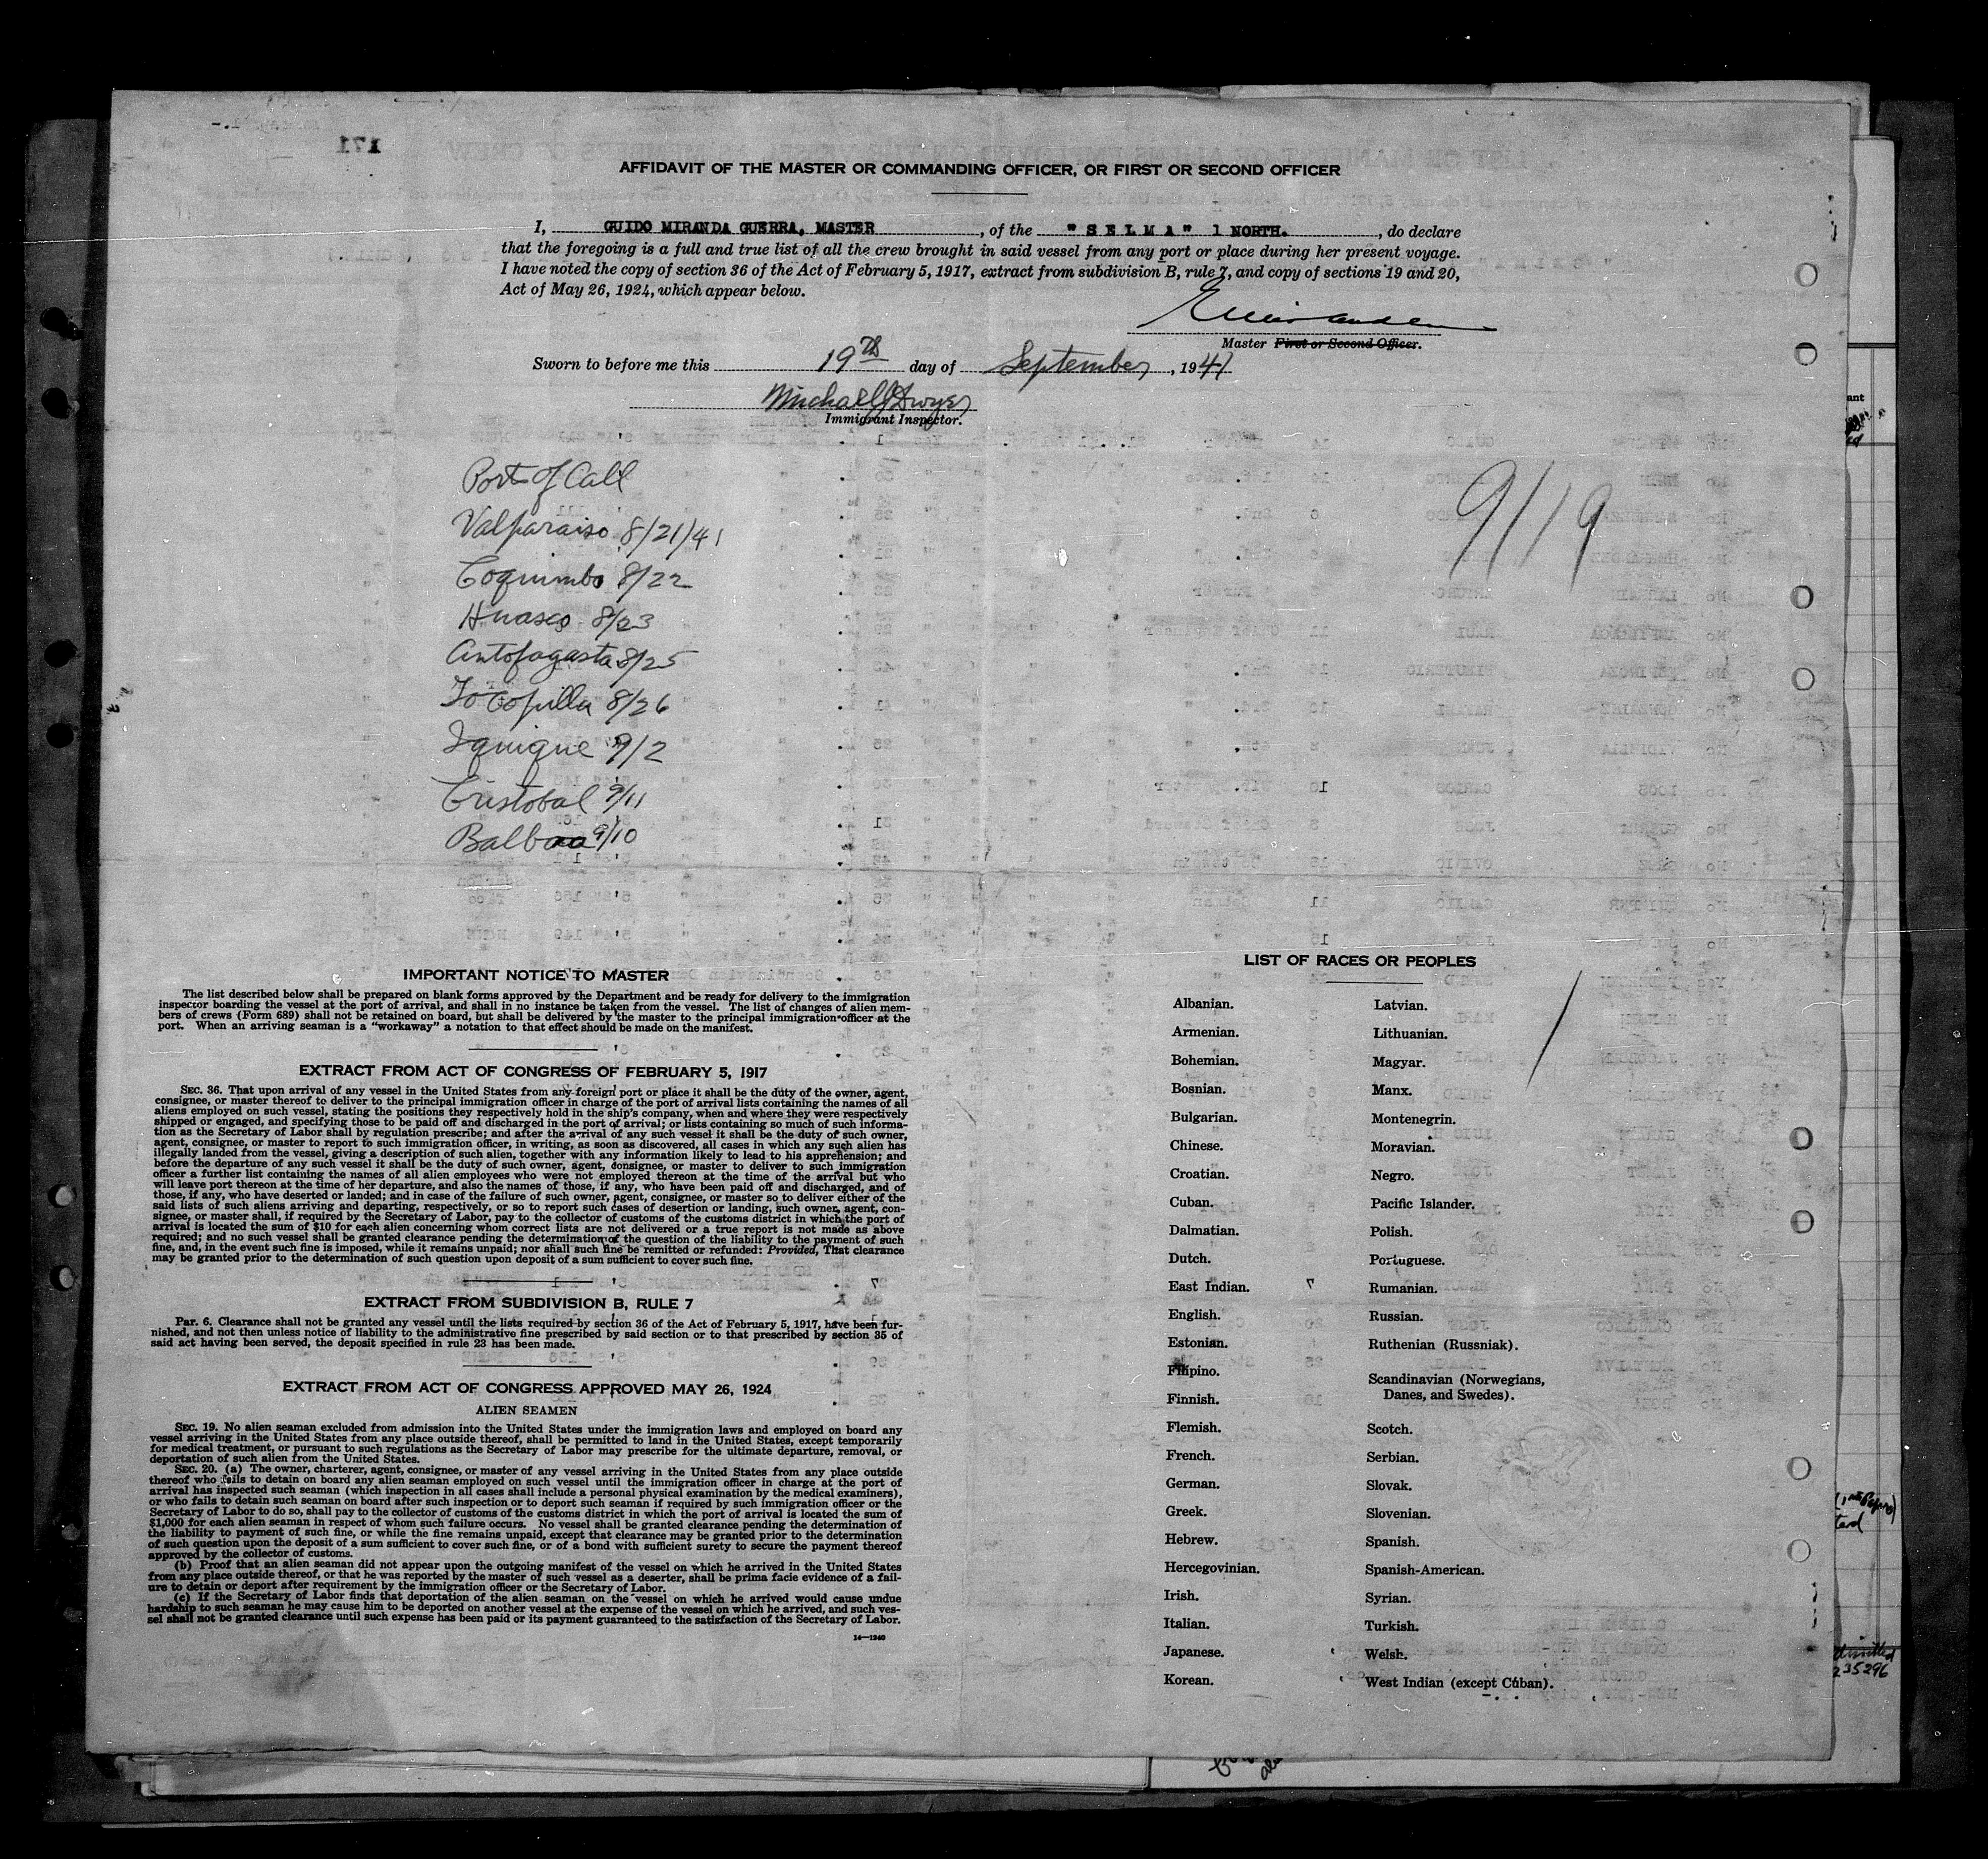 171
AFFIDAVIT OF THE MASTER OR COMMANDING OFFICER, OR FIRST OR SECOND OFFICER
I, GUIDO MIRANDA GUERRA, MASTER, of the "SELMA" 1 NORTH., do declare
that the foregoing is a full and true list of all the crew brought in said vessel from any port or place during her present voyage.
I have noted the copy of section 36 of the Act of February 5, 1917, extract from subdivision B, rule 7, and copy of sections 19 and 20,
Act of May 26, 1924, which appear below.
Master First or Second Officer.
Sworn to before me this 19th day of September, 1941
Michael J Dwyer
Immigrant Inspector.
Port of Call
Valparaiso 8/21/41
Coquimbo 8/22
Huasco 8/23
Antofagasta 8/25
Tocopilla 8/26
Iquique 9/2
Cristobal 9/11
Balboa 9/10
9/19
IMPORTANT NOTICE TO MASTER
The list described below shall be prepared on blank forms approved by the Department and be ready for delivery to the immigration
inspector boarding the vessel at the port of arrival, and shall in no instance be taken from the vessel. The list of changes of alien mem-
bers of crews (Form 689) shall not be retained on board, but shall be delivered by the master to the principal immigration officer at the
port. When an arriving seaman is a "workaway" a notation to that effect should be made on the manifest.
EXTRACT FROM ACT OF CONGRESS OF FEBRUARY 5, 1917
SEC. 36. That upon arrival of any vessel in the United States from any foreign port or place it shall be the duty of the owner, agent,
consignee, or master thereof to deliver to the principal immigration officer in charge of the port of arrival lists containing the names of all
aliens employed on such vessel, stating the positions they respectively hold in the ship's company, when and where they were respectively
shipped or engaged, and specifying those to be paid off and discharged in the port of arrival; or lists containing so much of such informa-
tion as the Secretary of Labor shall by regulation prescribe; and after the arrival of any such vessel it shall be the duty of such owner,
agent, consignee, or master to report to such immigration officer, in writing, as soon as discovered, all cases in which any such alien has
illegally landed from the vessel, giving a description of such alien, together with any information likely to lead to his apprehension; and
before the departure of any such vessel it shall be the duty of such owner, agent, consignee, or master to deliver to such immigration
officer a further list containing the names of all alien employees who were not employed thereon at the time of the arrival but who
will leave port thereon at the time of her departure, and also the names of those, if any, who have been paid off and discharged, and of
those, if any, who have deserted or landed; and in case of the failure of such owner, agent, consignee, or master so to deliver either of the
said lists of such aliens arriving and departing, respectively, or so to report such cases of desertion or landing, such owner, agent, con-
signee, or master shall, if required by the Secretary of Labor, pay to the collector of customs of the customs district in which the port of
arrival is located the sum of $10 for each alien concerning whom correct lists are not delivered or a true report is not made as above
required; and no such vessel shall be granted clearance pending the determination of the question of the liability to the payment of such
fine, and, in the event such fine is imposed, while it remains unpaid; nor shall such fine be remitted or refunded: Provided, That clearance
may be granted prior to the determination of such question upon deposit of a sum sufficient to cover such fine.
EXTRACT FROM SUBDIVISION B, RULE 7
Par. 6. Clearance shall not be granted any vessel until the lists required by section 36 of the Act of February 5, 1917, have been fur-
nished, and not then unless notice of liability to the administrative fine prescribed by said section or to that prescribed by section 35 of
said act having been served, the deposit specified in rule 23 has been made.
EXTRACT FROM ACT OF CONGRESS APPROVED MAY 26, 1924
ALIEN SEAMEN
SEC. 19. No alien seaman excluded from admission into the United States under the immigration laws and employed on board any
vessel arriving in the United States from any place outside thereof, shall be permitted to land in the United States, except temporarily
for medical treatment, or pursuant to such regulations as the Secretary of Labor may prescribe for the ultimate departure, removal, or
deportation of such alien from the United States.
SEC. 20. (a) The owner, charterer, agent, consignee, or master of any vessel arriving in the United States from any place outside
thereof who fails to detain on board any alien seaman employed on such vessel until the immigration officer in charge at the port of
arrival has inspected such seaman (which inspection in all cases shall include a personal physical examination by the medical examiners),
or who fails to detain such seaman on board after such inspection or to deport such seaman if required by such immigration officer or the
Secretary of Labor to do so, shall pay to the collector of customs of the customs district in which the port of arrival is located the sum of
$1,000 for each alien seaman in respect of whom such failure occurs. No vessel shall be granted clearance pending the determination of
the liability to payment of such fine, or while the fine remains unpaid, except that clearance may be granted prior to the determination
of such question upon the deposit of a sum sufficient to cover such fine, or of a bond with sufficient surety to secure the payment thereof
approved by the collector of customs.
(b) Proof that an alien seaman did not appear upon the outgoing manifest of the vessel on which he arrived in the United States
from any place outside thereof, or that he was reported by the master of such vessel as a deserter, shall be prima facie evidence of a fail-
ure to detain or deport after requirement by the immigration officer or the Secretary of Labor.
(c) If the Secretary of Labor finds that deportation of the alien seaman on the vessel on which he arrived would cause undue
hardship to such seaman he may cause him to be deported on another vessel at the expense of the vessel on which he arrived, and such ves-
sel shall not be granted clearance until such expense has been paid or its payment guaranteed to the satisfaction of the Secretary of Labor.
14—1240
LIST OF RACES OR PEOPLES
Albanian.
Armenian.
Bohemian.
Bosnian.
Bulgarian.
Chinese.
Croatian.
Cuban.
Dalmatian.
Dutch.
East Indian.
English.
Estonian.
Filipino.
Finnish.
Flemish.
French.
German.
Greek.
Hebrew.
Hercegovinian.
Irish.
Italian.
Japanese.
Korean.
Latvian.
Lithuanian.
Magyar.
Manx.
Montenegrin.
Moravian.
Negro.
Pacific Islander.
Polish.
Portuguese.
Rumanian.
Russian.
Ruthenian (Russniak).
Scandinavian (Norwegians,
Danes, and Swedes).
Scotch.
Serbian.
Slovak.
Slovenian.
Spanish.
Spanish-American.
Syrian.
Turkish.
Welsh.
West Indian (except Cuban).
235296